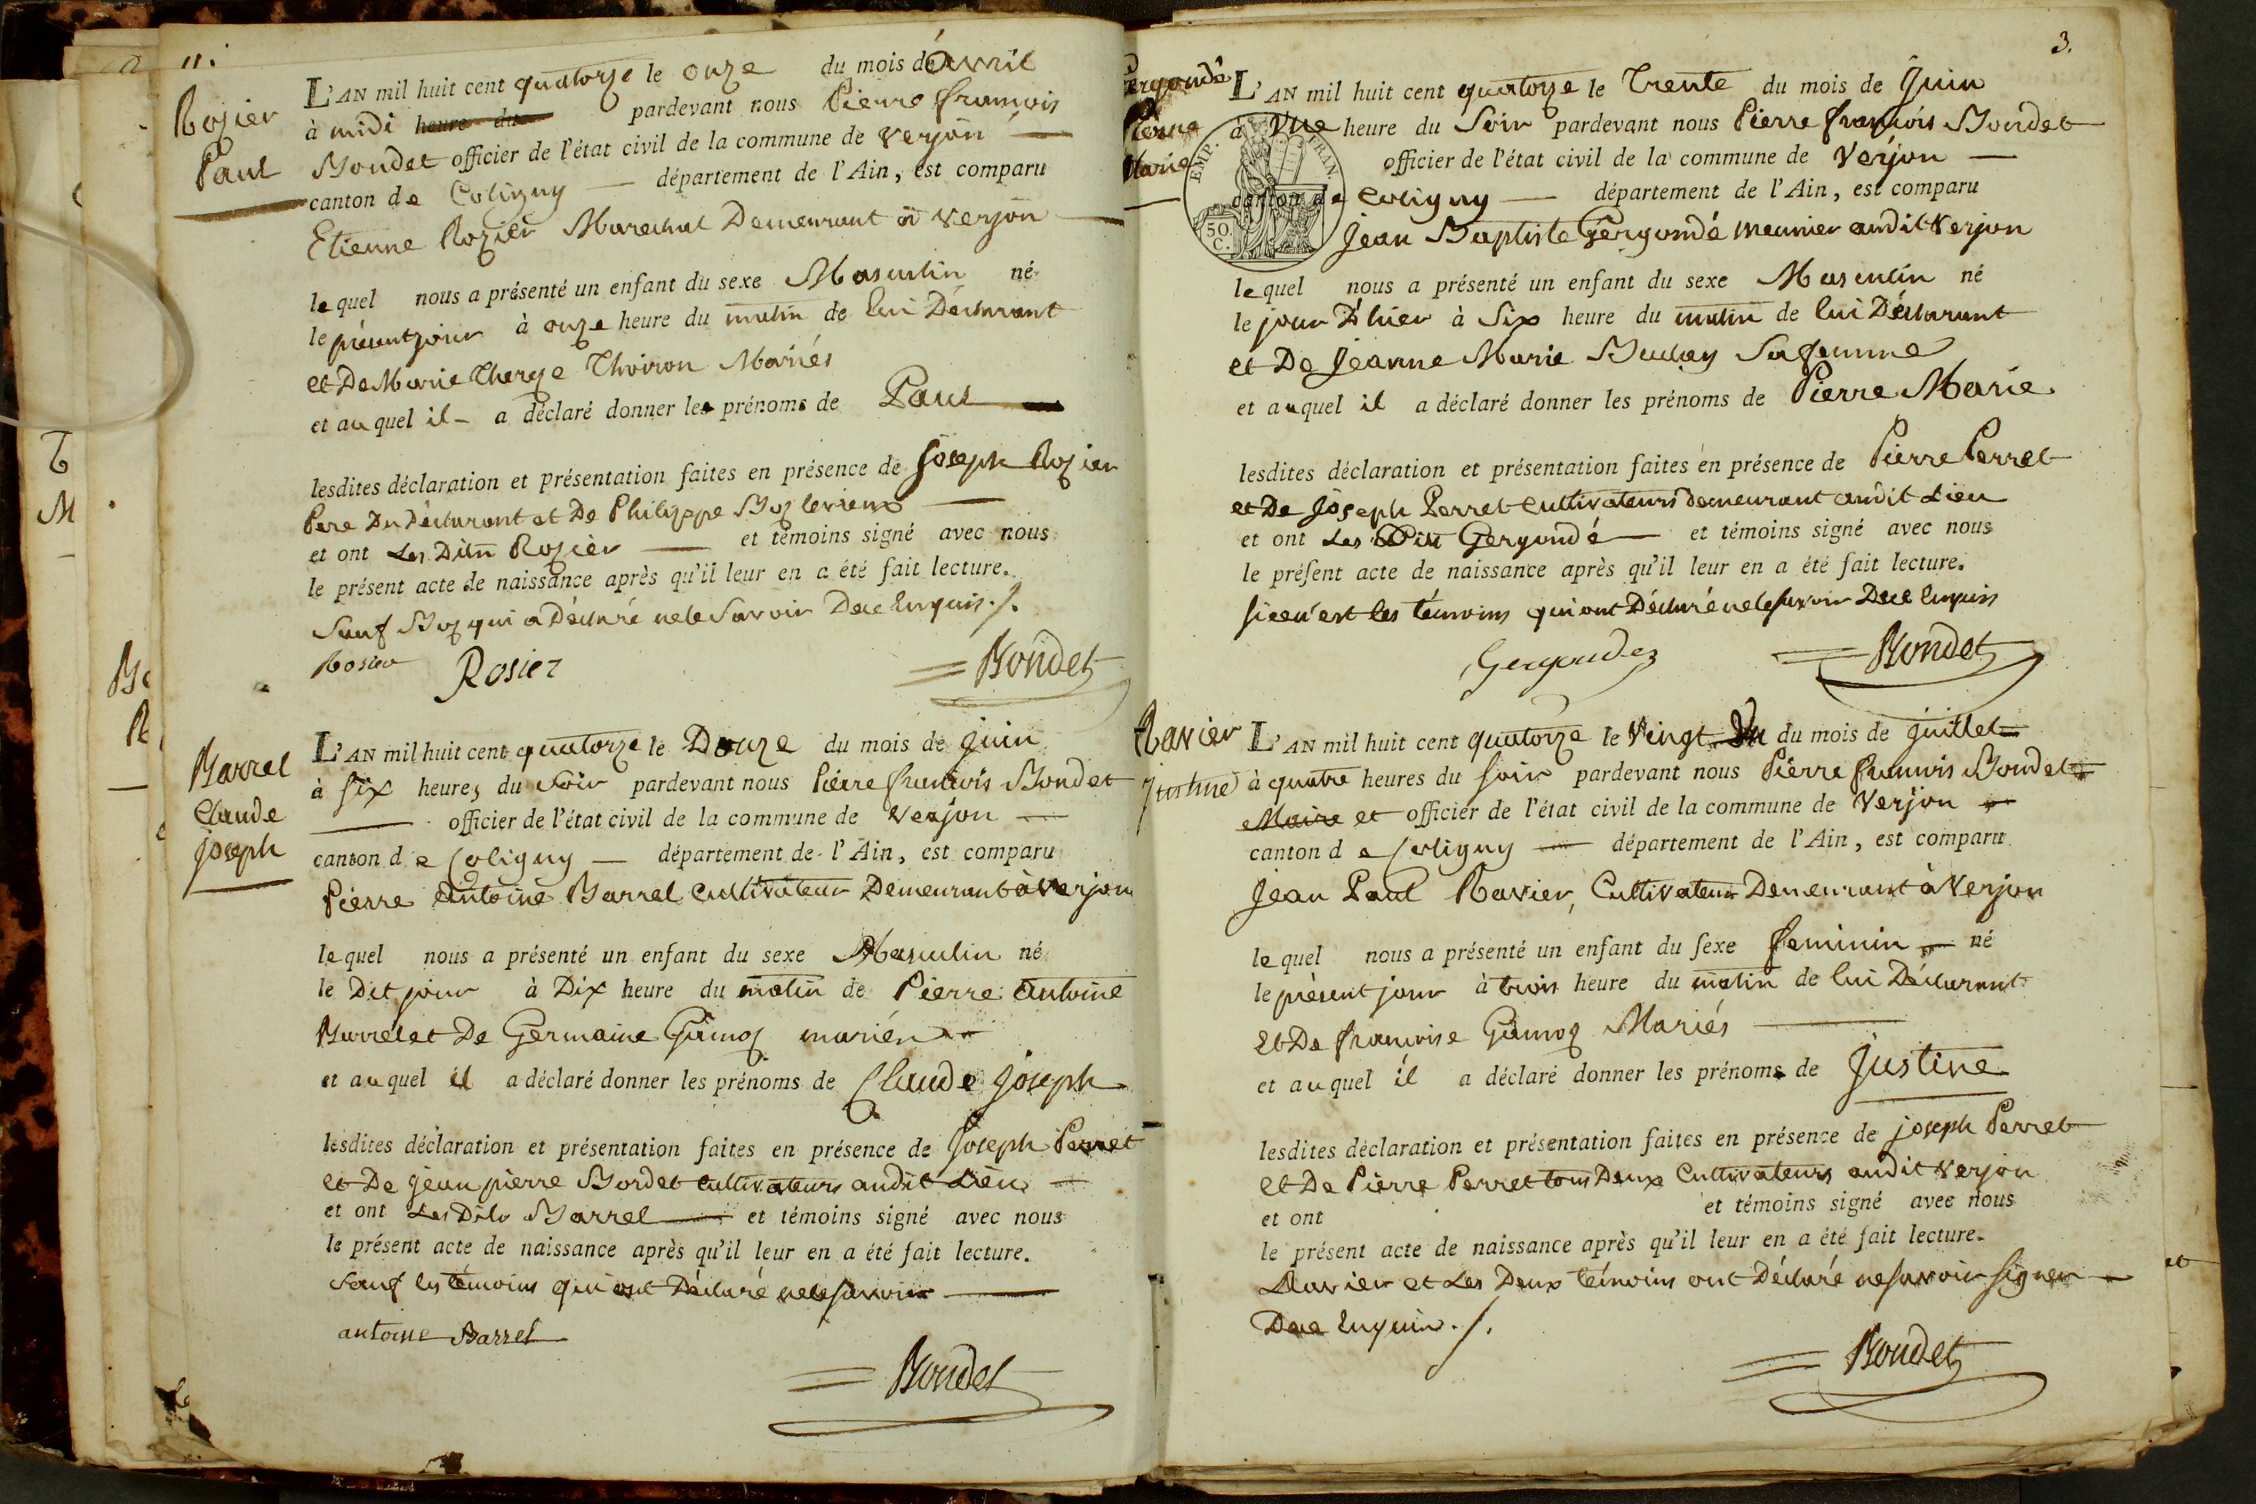 11.
Rozier
Paul
L'AN mil huit cent quatorze le onze du mois de Avril
à midi heure du pardevant nous Pierre francois
Bondet officier de l'état civil de la commune de verjon
canton de Coligny département de l'Ain, est comparu
Etienne Rozier Marechal Demeurant à verjon
lequel nous a présenté un enfant du sexe Masculin né
le présent jour à onze heure du matin de lui Déclarant
et De Marie Thereze Thoiron Mariés
et auquel il a déclaré donner les prénoms de Paul
lesdites déclaration et présentation faites en présence de Joseph Rozier
Pere Du Déclarant et De Philippe Boz
et ont Les Dits Rozier et témoins signé avec nous
le présent acte de naissance après qu'il leur en a été fait lecture.
Sauf Boz qui a Déclaré ne le Savoir De ce Enquis ./.
Rosier Rosier Bondet
Barrel
Claude
joseph
L'AN mil huit cent quatorze le Douze du mois de juin
à six heures du soir pardevant nous Pierre francois Bondet
officier de l'état civil de la commune de verjon
canton de Coligny département de l'Ain, est comparu
Pierre Antoine Barrel cultivateur Demeurant à verjon
lequel nous a présenté un enfant du sexe Masculin né
le Dit jour à Dix heure du matin de Pierre Antoine
Barrel et De Germaine Gümoz mariés
et auquel il a déclaré donner les prénoms de Claude joseph
lesdites déclaration et présentation faites en présence de Joseph Perret
et De jean pierre Bordet cultivateurs audit Lieu
et ont Les Dits Barrel et témoins signé avec nous
le présent acte de naissance après qu'il leur en a été fait lecture.
Sauf les témoins qui ont Déclaré ne le savoir
antoine Barrel
Bondet
3.
Gergondé
Pierre
Marie
EMP. FRAN.
50 C.
L'AN mil huit cent quatorze le Trente du mois de juin
à Une heure du Soir pardevant nous Pierre francois Bondet
officier de l'état civil de la commune de verjon
canton de Coligny département de l'Ain, est comparu
Jean Baptiste Gergondé meunier audit verjon
lequel nous a présenté un enfant du sexe Masculin né
le jour D'hier à Six heure du matin de lui Déclarant
et De Jeanne Marie Buchey Sa femme
et auquel il a déclaré donner les prénoms de Pierre Marie
lesdites déclaration et présentation faites en présence de Pierre Perret
et De Joseph Perret cultivateurs demeurant audit Lieu
et ont Les Dits Gergondé et témoins signé avec nous
le présent acte de naissance après qu'il leur en a été fait lecture.
si ce n'est les témoins qui ont Déclaré ne le savoir De ce Enquis
Gergondez Bondet
Ravier
Justine
L'AN mil huit cent quatorze le Vingt Un du mois de juillet
à quatre heures du soir pardevant nous Pierre francois Bondet
Maire et officier de l'état civil de la commune de Verjon
canton de Coligny département de l'Ain, est comparu
Jean Paul Ravier, Cultivateur Demeurant à Verjon
lequel nous a présenté un enfant du sexe feminin né
le présent jour à trois heure du matin de lui Déclarant
Et De francoise Gümoz Mariés
et auquel il a déclaré donner les prénoms de Justine
lesdites déclaration et présentation faites en présence de joseph Perret
et De Pierre Perret tous Deux Cultivateurs audit verjon
et ont et témoins signé avec nous
le présent acte de naissance après qu'il leur en a été fait lecture.
Ravier et Les Deux témoins ont Déclaré ne savoir signer
De ce Enquis ./.
Bondet